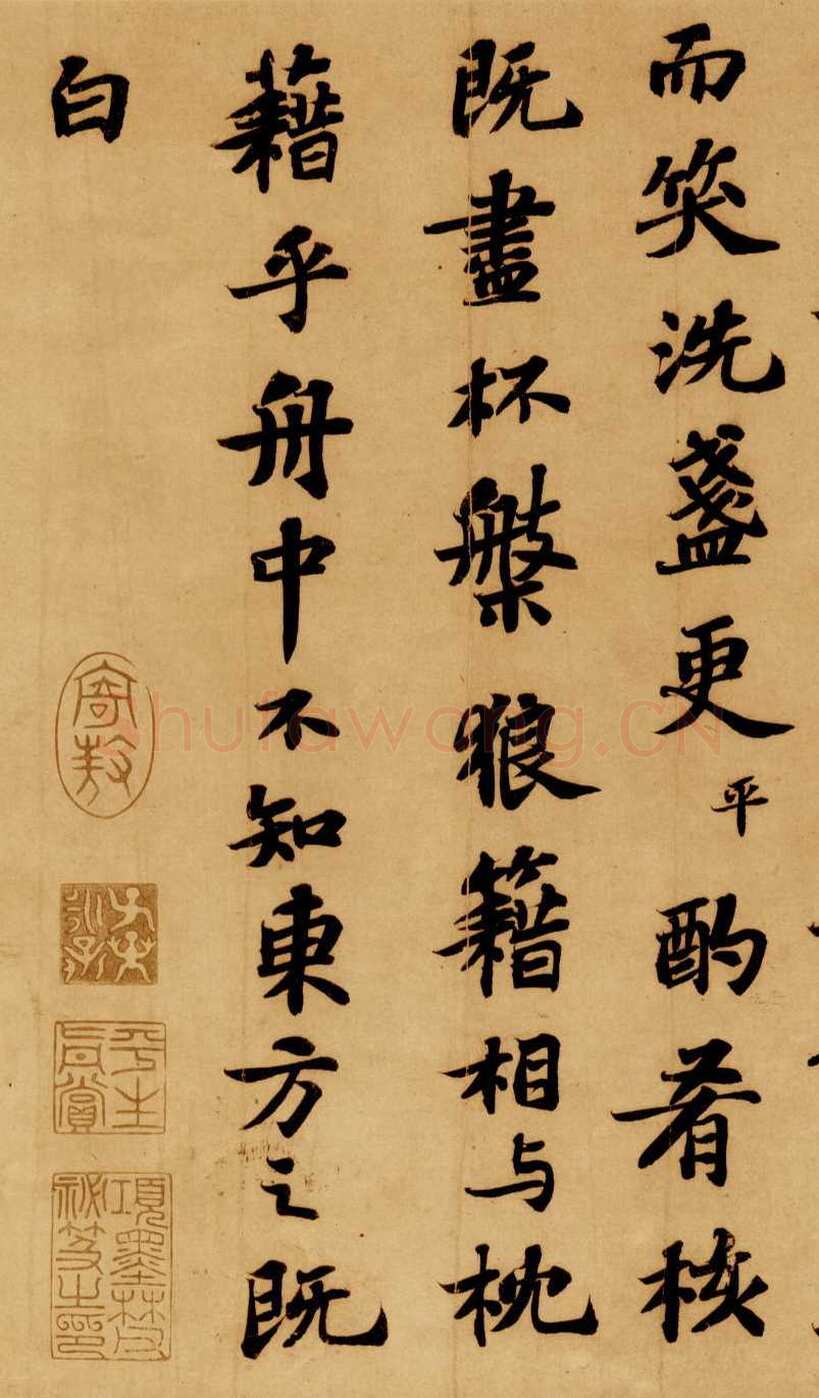 而笑洗盞更平酌肴核
既盡杯槃狼籍相與枕
藉乎舟中不知東方之既
白
平生真賞
項墨林父祕笈之印
shufawang.CN